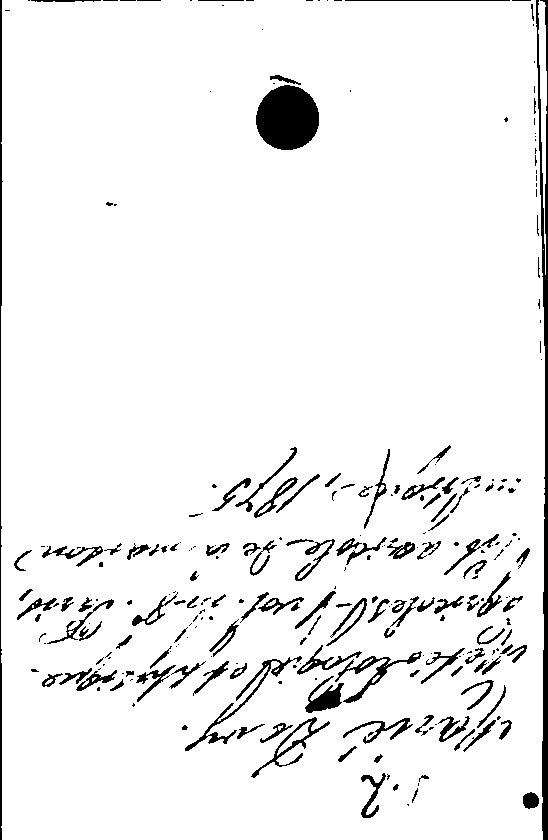 Marié Davy.
Météorologie et physique
agricoles. 1 vol. in-8°. Paris,
lib. agricole de la maison
rustique, 1875.